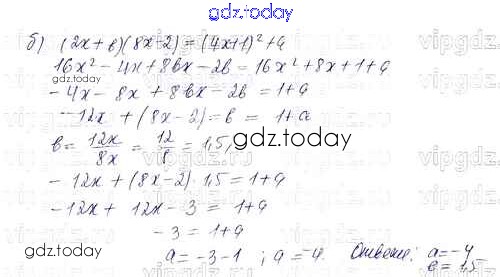 gdz.today
б) (2x + в)(8x-2) = (4x+1)² + a
16x² - 4x + 8вx - 2в = 16x² + 8x + 1 + a
gdz.today
- 4x - 8x + 8вx - 2в = 1+a
- 12x + (8x-2) = в = 1+a
gdz.today
в = 12x/8x = 12/8 = 1,5,
- 12x + (8x-2) · 1,5 = 1+a
- 12x + 12x - 3 = 1+a
- 3 = 1+a
gdz.today
a = -3-1 ; a = -4. Ответ: a = -4
в = 1,5
gdz.today